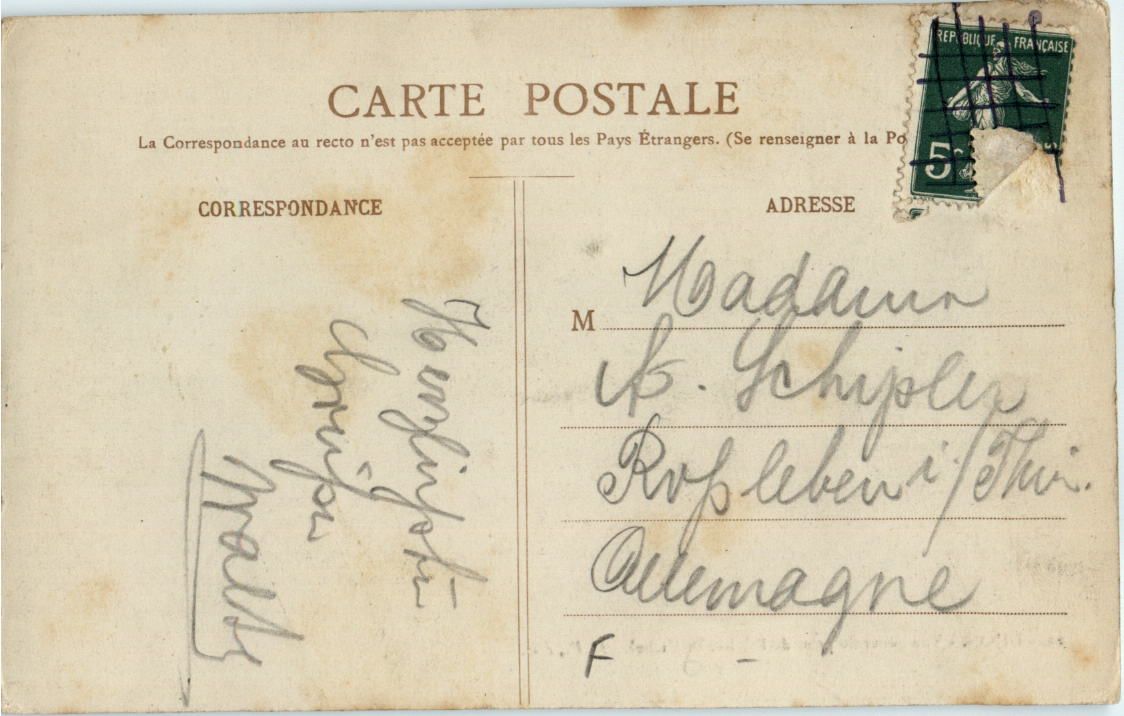 CARTE POSTALE
La Correspondance au recto n'est pas acceptée par tous les Pays Étrangers. (Se renseigner à la Po
REPUBLIQUE FRANÇAISE
5c
CORRESPONDANCE
ADRESSE
Herzlichsten
M
Madame
A. Schipler
Roßleben i/Thür.
Allemagne
F